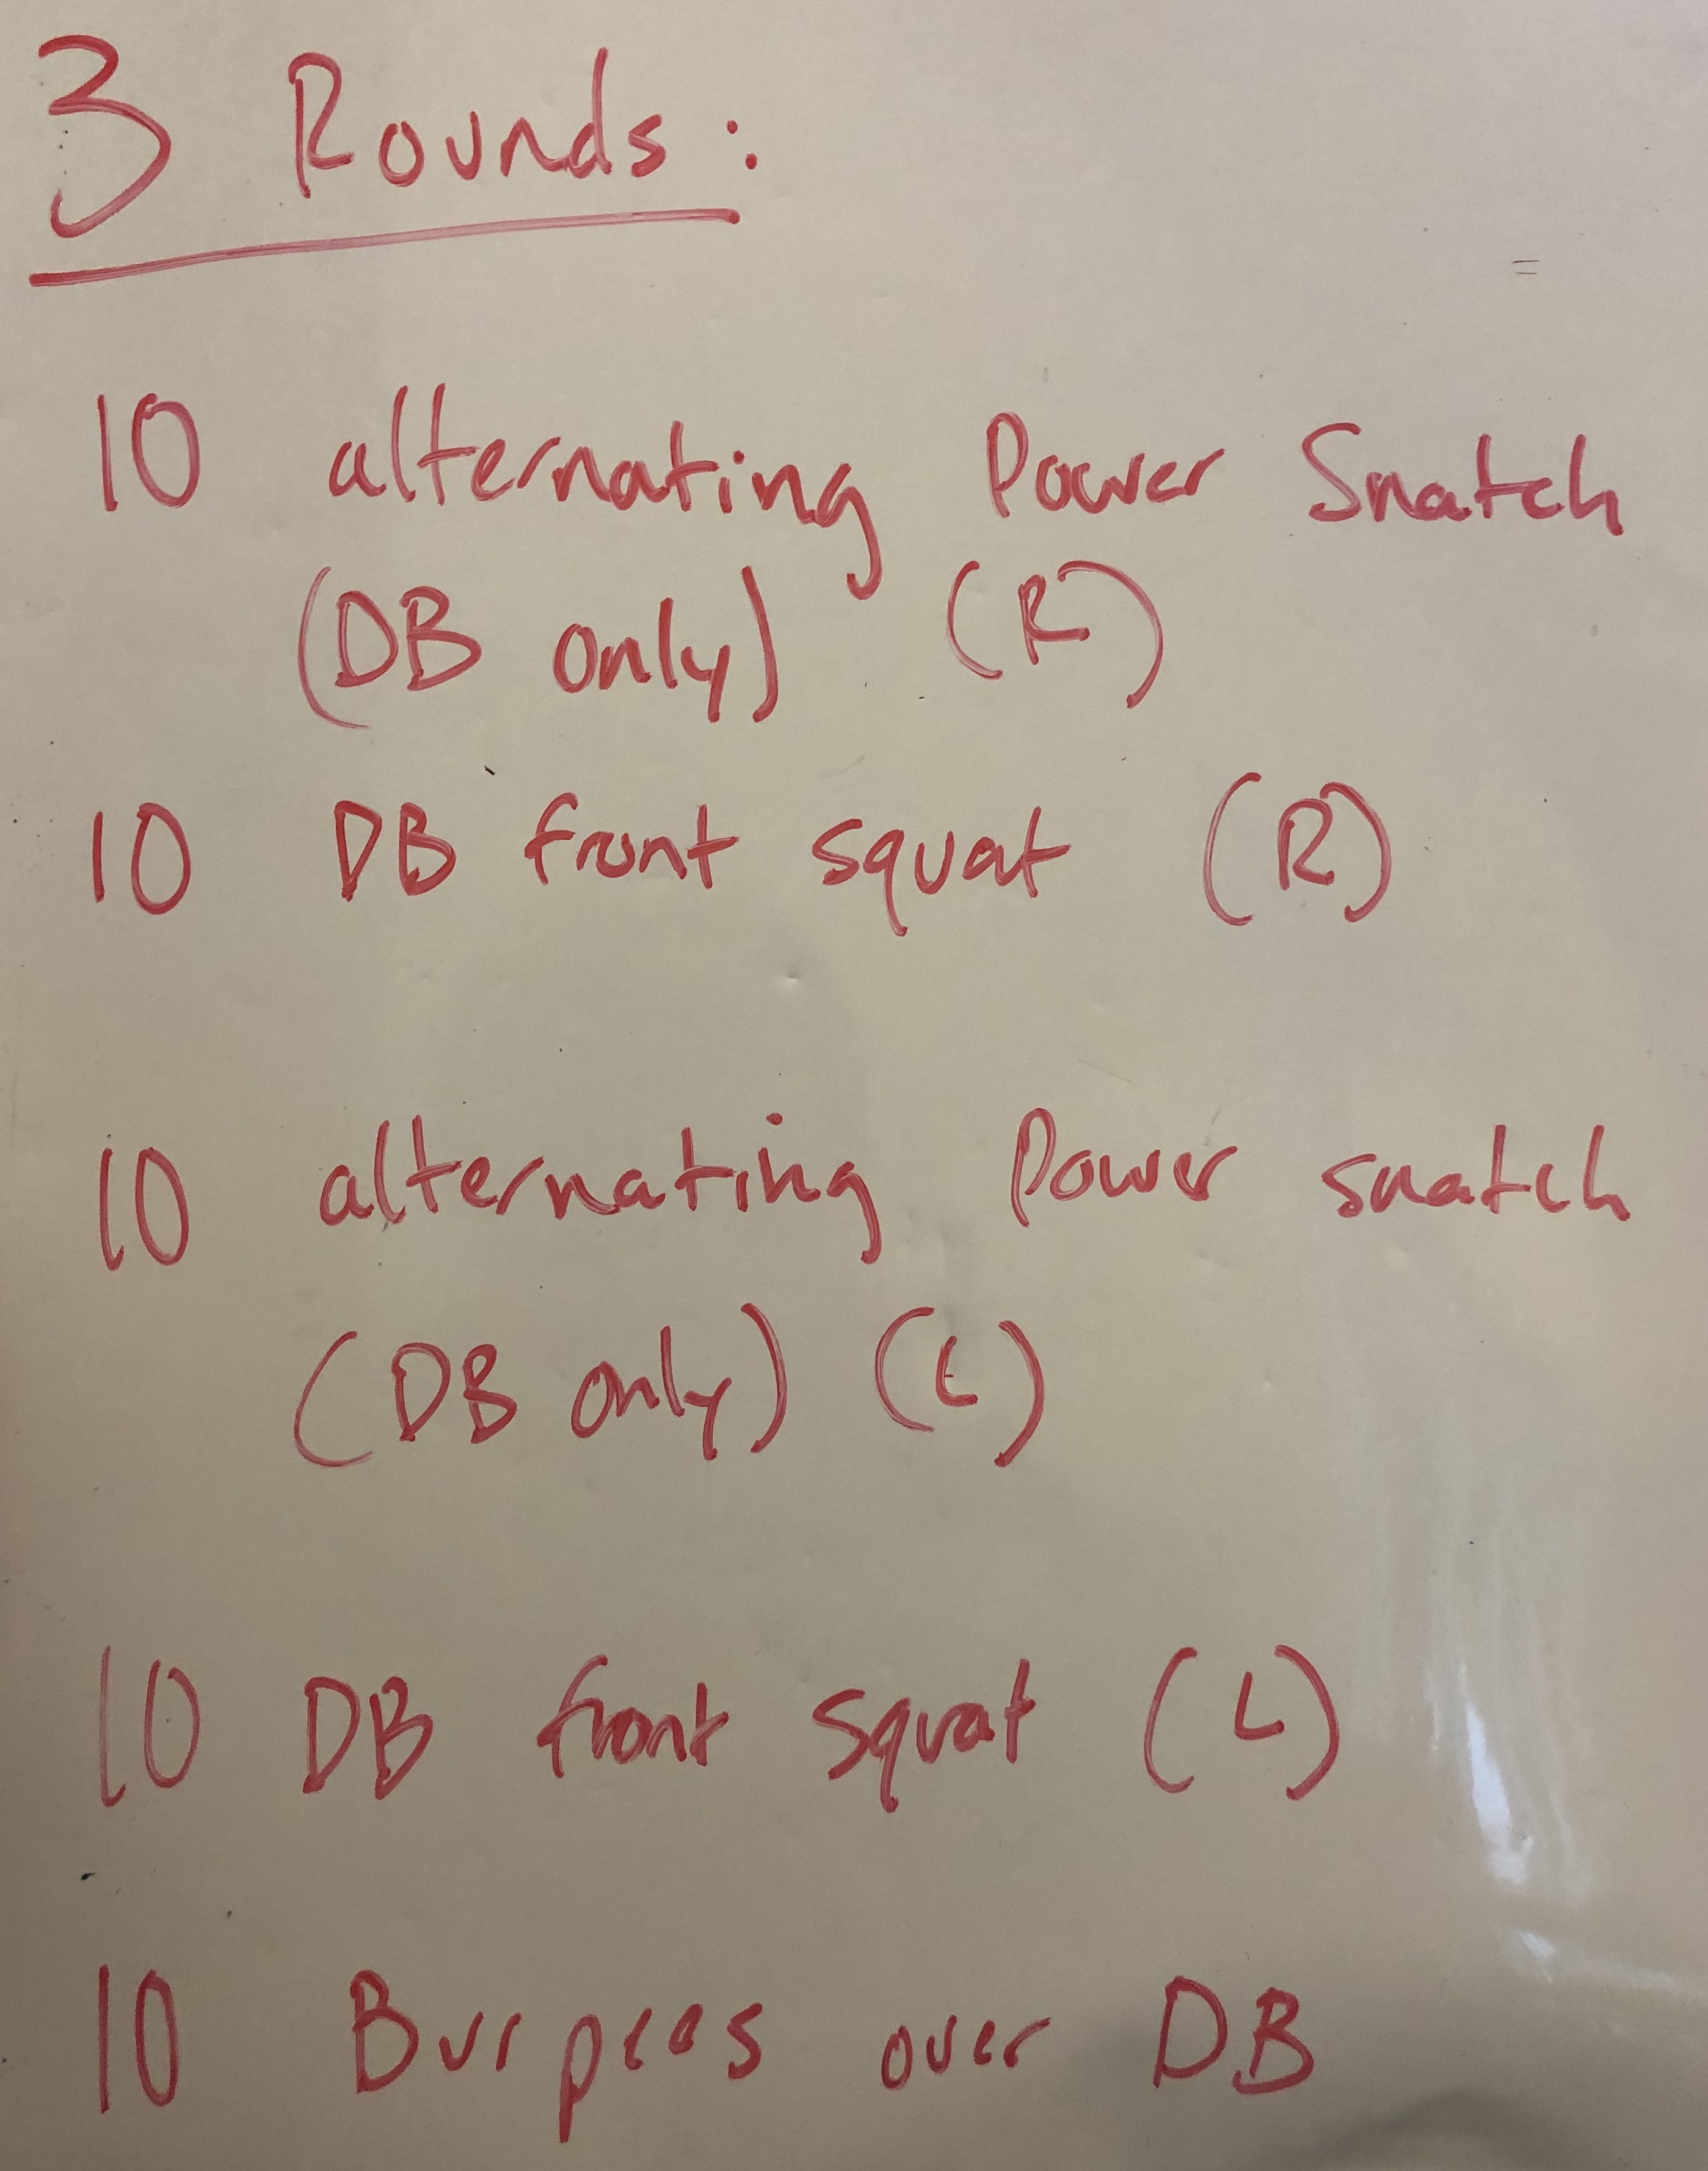 3 Rounds:
10 alternating Power Snatch
(DB only) (R)
10 DB front squat (R)
10 alternating Power snatch
(DB only) (L)
10 DB front squat (L)
10 Burpees over DB